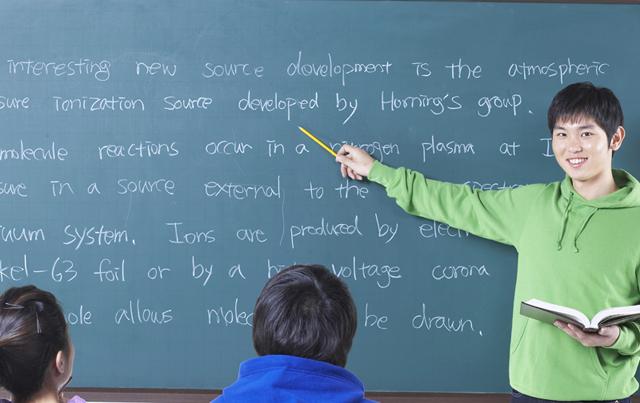 interesting new source development is the atmospheric
sure ionization source developed by Horning's group.
molecule reactions occur in a nitrogen plasma at
sure in a source external to the
uum system. Ions are produced by
kel-63 foil or by a voltage corona
ole allows be drawn.